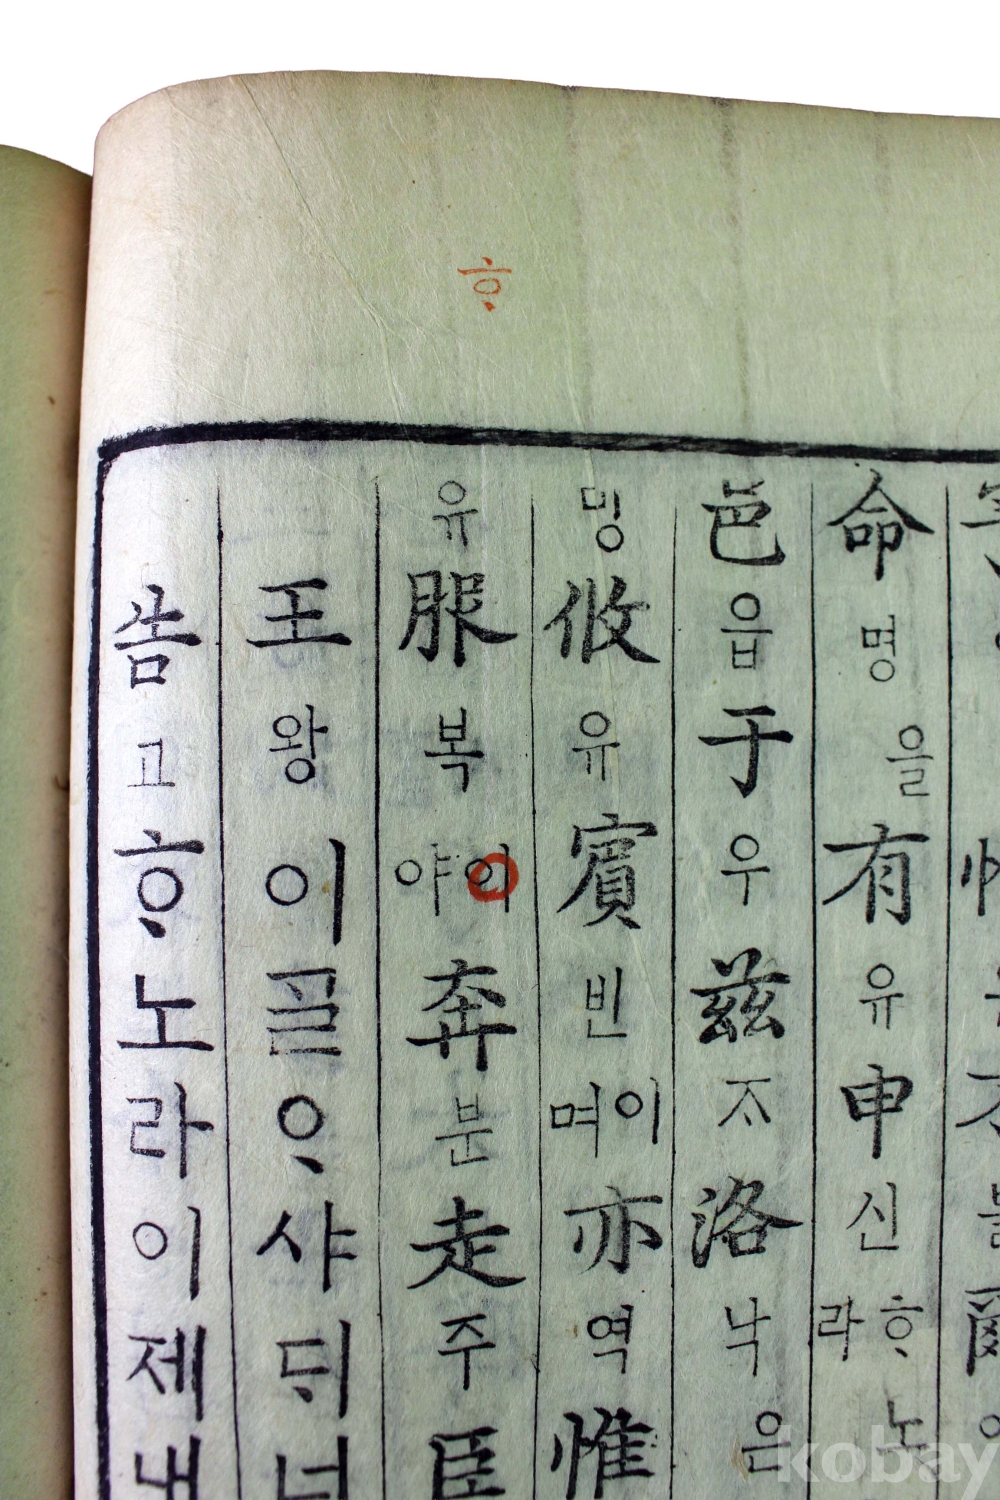 ᄒᆞ
命명을有유申신ᄒᆞ노라
邑읍于우茲ᄌᆞ洛낙은
攸유賓빈이며亦역惟
유服복이야奔분走주臣
王왕이ᄀᆞᆯᄋᆞ샤ᄃᆡ너
告고ᄒᆞ노라이제내
kobay